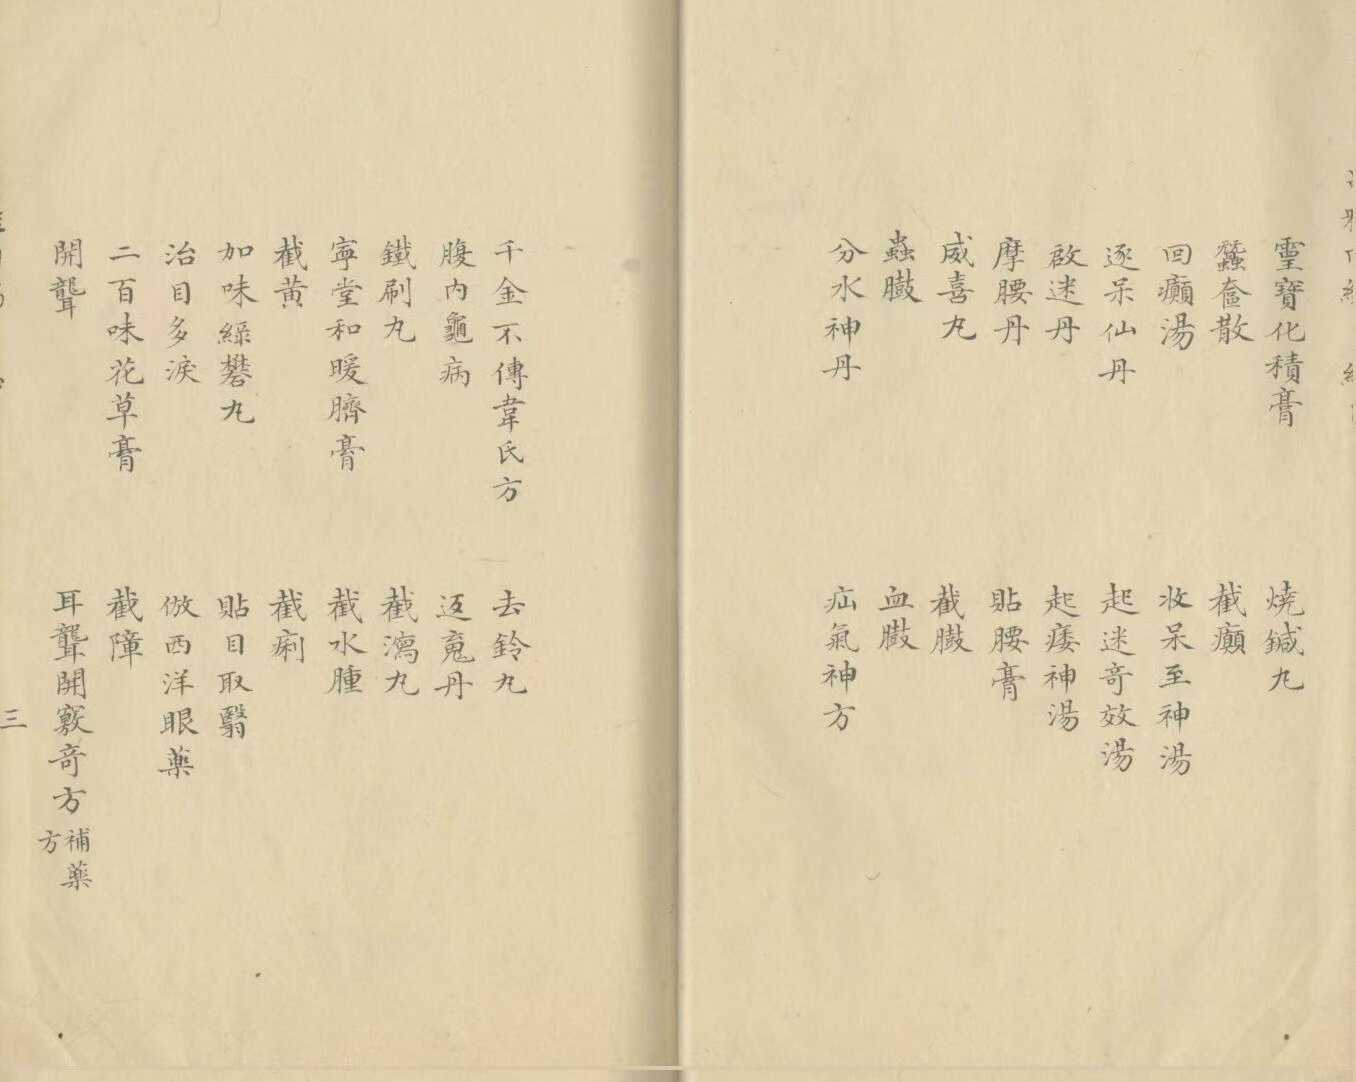 靈寶化積膏
燒鍼丸
蠶奩散
截癲
回癲湯
收呆至神湯
逐呆仙丹
起迷奇效湯
啟迷丹
起痿神湯
摩腰丹
貼腰膏
威喜丸
截臌
蟲臌
血臌
分水神丹
疝氣神方
千金不傳韋氏方
去鈴丸
腹內龜病
返魂丹
鐵刷丸
截瀉丸
寧堂和暖臍膏
截水腫
截黃
截痢
加味綠礬丸
貼目取翳
治目多淚
倣西洋眼藥
二百味花草膏
截障
開聾
耳聾開竅奇方 補藥方
三